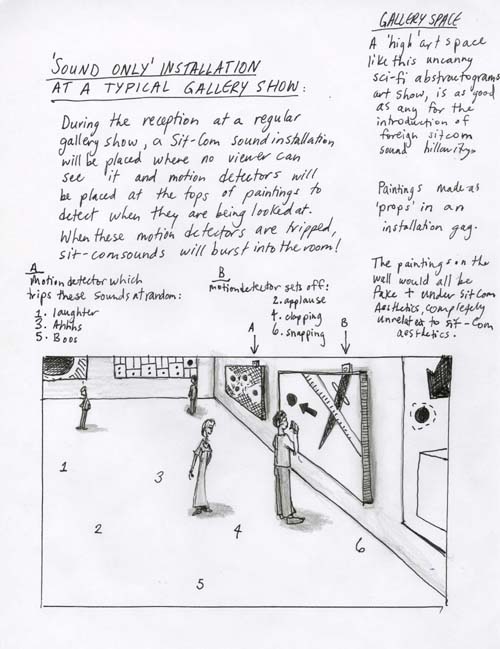 'SOUND ONLY' INSTALLATION
AT A TYPICAL GALLERY SHOW:
During the reception at a regular
gallery show, a Sit-Com sound installation
will be placed where no viewer can
see it and motion detectors will
be placed at the tops of paintings to
detect when they are being looked at.
When these motion detectors are tripped,
sit-com sounds will burst into the room!
GALLERY SPACE
A 'high' art space
like this uncanny
sci-fi abstractograms
art show, is as good
as any for the
introduction of
foreign sitcom
sound
Paintings made as
'props' in an
installation gag.
The paintings on the
wall would all be
fake + under Sit Com
Aesthetics, completely
unrelated to Sit-Com
aesthetics.
A
Motion detector which
trips these sounds at random:
1. laughter
3. Ahhhs
5. Boos
B
motion detector sets off:
2. applause
4. clapping
6. snapping
A
B
1
3
2
4
6
5